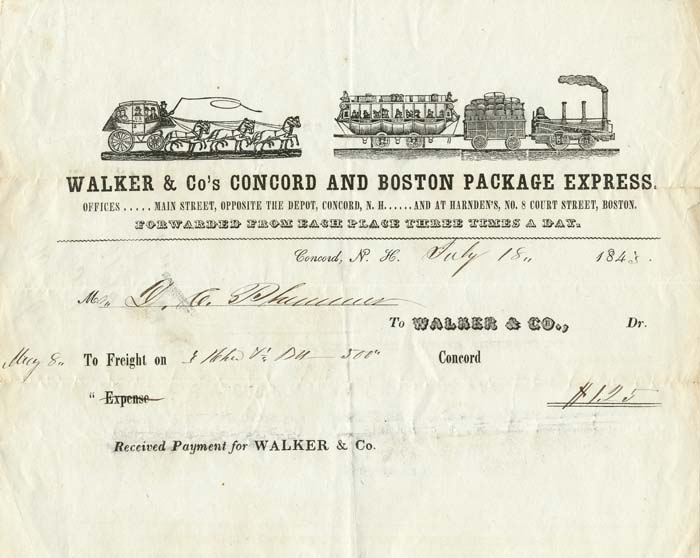 WALKER & Co's CONCORD AND BOSTON PACKAGE EXPRESS.
OFFICES ..... MAIN STREET, OPPOSITE THE DEPOT, CONCORD, N. H. ..... AND AT HARNDEN'S, NO. 8 COURT STREET, BOSTON.
FORWARDED FROM EACH PLACE THREE TIMES A DAY.
Concord, N. H. July 18, 1843.
M D. C. Plummer
To WALKER & CO., Dr.
May 8 To Freight on 500 Concord
" Expense $1.25
Received Payment for WALKER & Co.